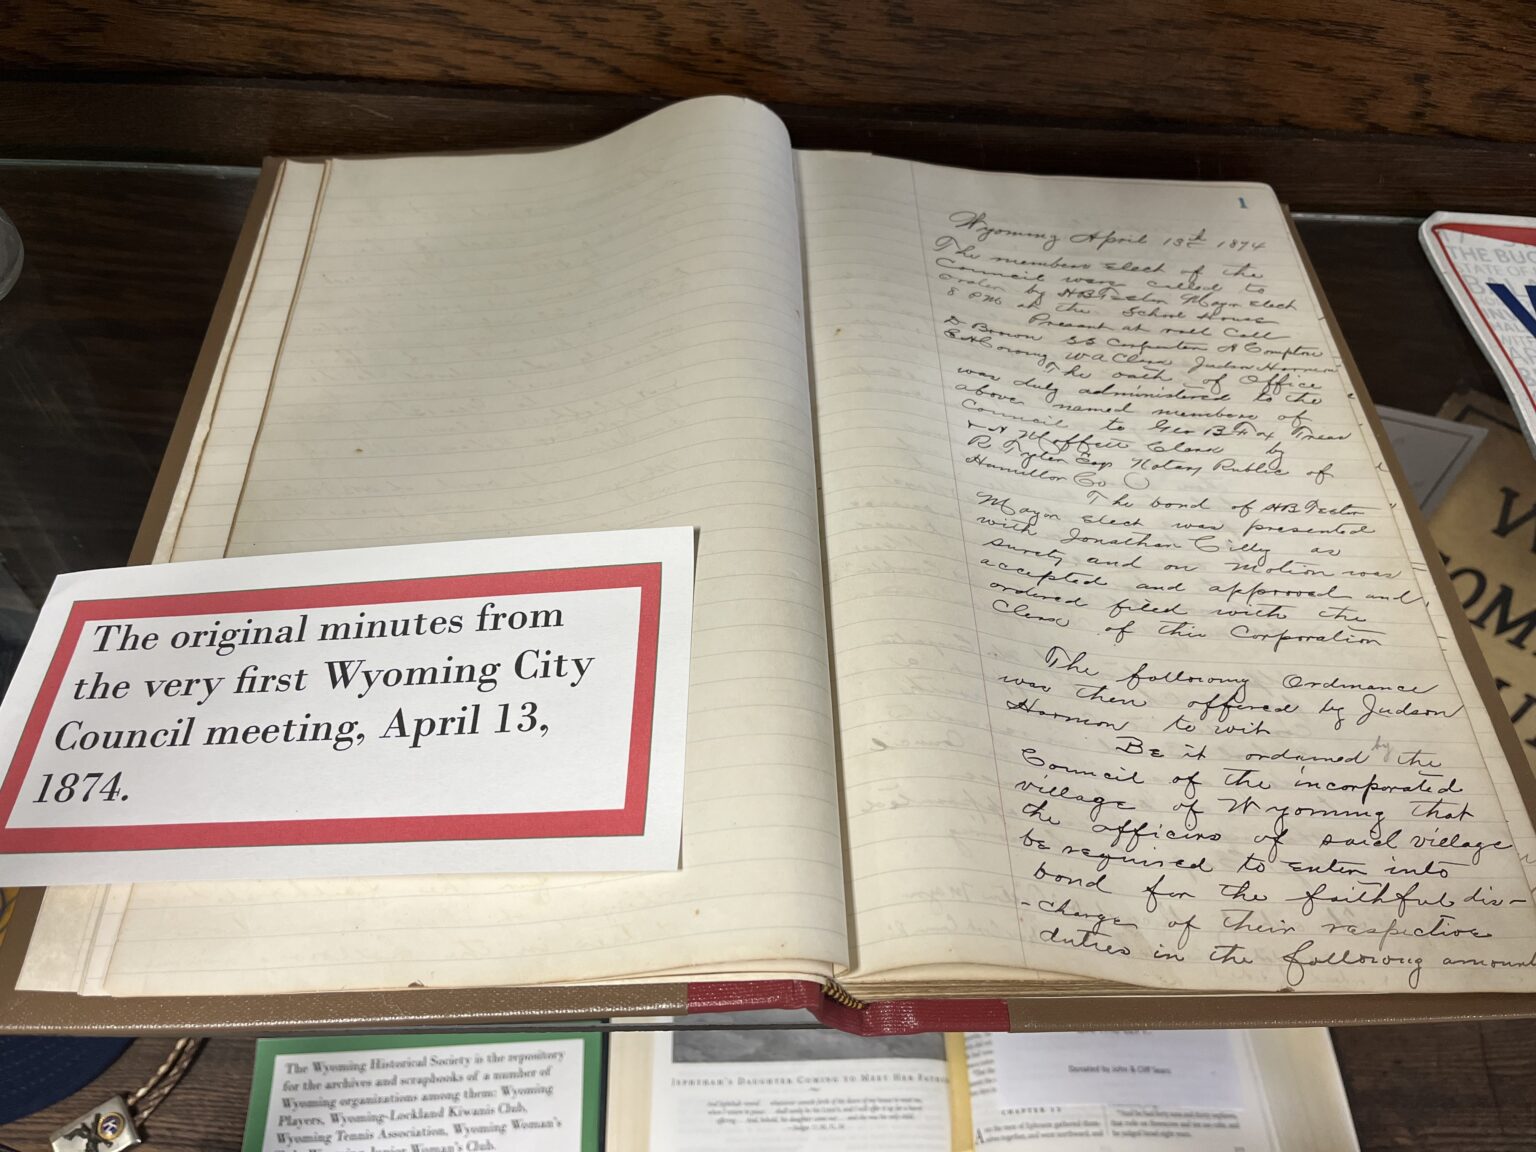 The original minutes from
the very first Wyoming City
Council meeting, April 13,
1874.
1
Wyoming April 13th 1874
The members elect of the
Council were called to
order by HB Teetor Mayor Elect
8 PM at the School House
Present at roll Call
D Brown SS Carpenter A Compton
W A Clark Judson Harmon
The oath of Office
was duly administered to the
above named members of
Council to Geo B Fox Treas
Moffett Clerk by
R Tyler Esqr Notary Public of
Hamilton Co
The bond of HB Teetor
Mayor Elect was presented
with Jonathan Cilly as
surety and on Motion was
accepted and approved and
ordered filed with the
Clerk of this Corporation
The following Ordinance
was then offered by Judson
Harmon to wit
Be it ordained by the
Council of the incorporated
village of Wyoming that
the officers of said village
be required to enter into
bond for the faithful dis-
-charge of their respective
duties in the following amount
The Wyoming Historical Society is the repository
for the archives and scrapbooks of a number of
Wyoming organizations among them: Wyoming
Players, Wyoming-Lockland Kiwanis Club,
Wyoming Tennis Association, Wyoming Woman's
Club, Wyoming Junior Woman's Club.
Jephthah's Daughter Coming to Meet Her
Donated by John & Cliff Sears
CHAPTER 12
THE BUC
STATE OF